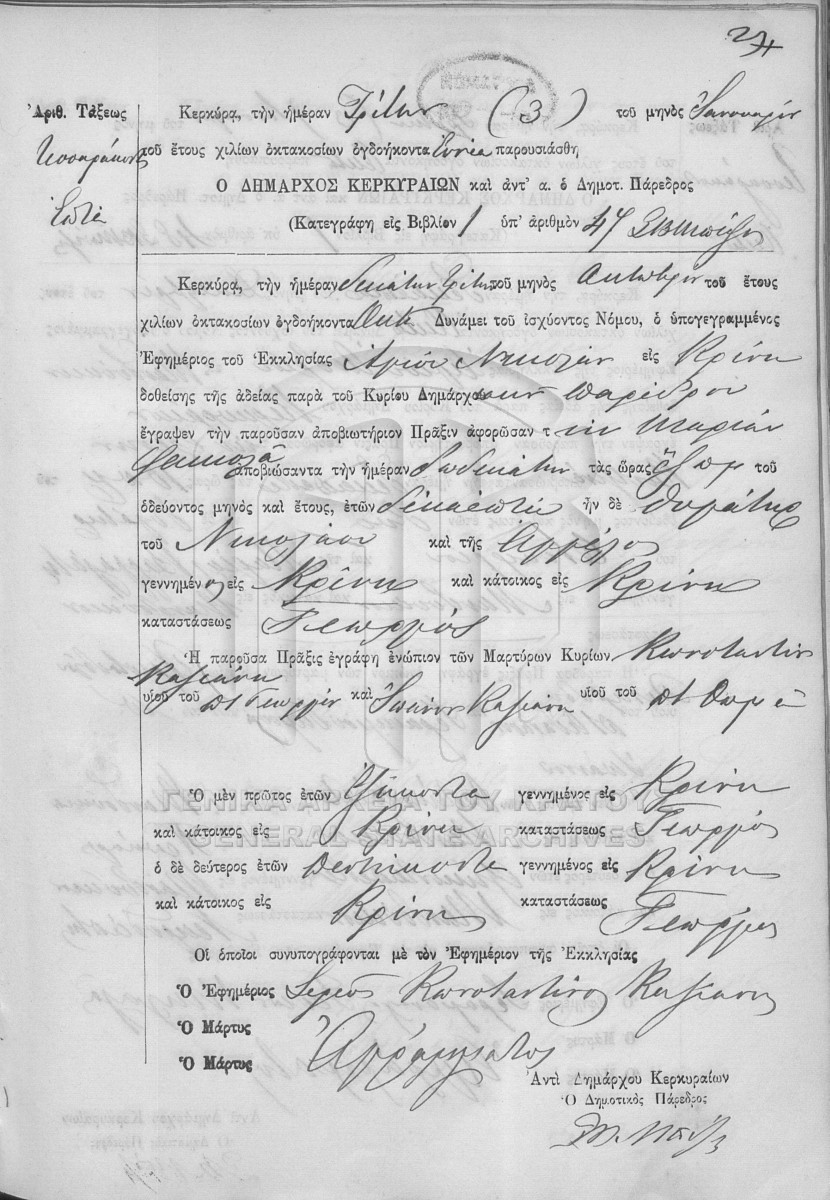 24
Ἀριθ. Τάξεως
Τεσσαράκοντα
Ἑπτά
Κερκύρα, τὴν ἡμέραν Τρίτην (3) τοῦ μηνὸς Ἰανουαρίου
τοῦ ἔτους χιλίων ὀκτακοσίων ὀγδοήκοντα Ἐννέα παρουσιάσθη
Ο ΔΗΜΑΡΧΟΣ ΚΕΡΚΥΡΑΙΩΝ καὶ ἀντ' α. ὁ Δημοτ. Πάρεδρος
(Κατεγράφη εἰς Βιβλίον 1 ὑπ' ἀριθμὸν 47
Κερκύρα, τὴν ἡμέραν δεκάτην τρίτην τοῦ μηνὸς Οκτωβρίου τοῦ ἔτους
χιλίων ὀκτακοσίων ὀγδοήκοντα Οκτὼ Δυνάμει τοῦ ἰσχύοντος Νόμου, ὁ ὑπογεγραμμένος
Ἐφημέριος τοῦ Ἐκκλησίας Αγίου Νικολάου εἰς Κρίνη
δοθείσης τῆς ἀδείας παρὰ τοῦ Κυρίου Δημάρχου Παρέδρου
ἔγραψεν τὴν παροῦσαν ἀποβιωτήριον Πρᾶξιν ἀφορῶσαν τ ην Μαρίαν
ἀποβιώσαντα τὴν ἡμέραν Δωδεκάτην τὰς ὥρας ἕξ πμ τοῦ
ὁδεύοντος μηνὸς καὶ ἔτους, ἐτῶν δεκαεπτά ἦν δὲ θυγάτηρ
τοῦ Νικολάου καὶ τῆς Ἀγγέλως
γεννημένη εἰς Κρίνη καὶ κάτοικος εἰς Κρίνη
καταστάσεως Γεωργός
Ἡ παροῦσα Πρᾶξις ἐγράφη ἐνώπιον τῶν Μαρτύρων Κυρίων Κωνσταντίνου
Κασιάνη
υἱοῦ τοῦ πτ Γεωργίου καὶ Ἰωάννου Κασιάνη υἱοῦ τοῦ πτ Θωμᾶ
Ὁ μὲν πρῶτος ἐτῶν Ἑξήκοντα γεννημένος εἰς Κρίνη
καὶ κάτοικος εἰς Κρίνη καταστάσεως Γεωργός
ὁ δὲ δεύτερος ἐτῶν Πεντήκοντα γεννημένος εἰς Κρίνη
καὶ κάτοικος εἰς Κρίνη καταστάσεως Γεωργός
ΓΕΝΙΚΑ ΑΡΧΕΙΑ ΤΟΥ ΚΡΑΤΟΥΣ
GENERAL STATE ARCHIVES
Οἱ ὁποῖοι συνυπογράφονται μὲ τὸν Ἐφημέριον τῆς Ἐκκλησίας
Ὁ Ἐφημέριος Ιερεύς Κωνσταντίνος Κασιάνης
Ὁ Μάρτυς
Ὁ Μάρτυς Ἀγράμματος
Ἀντὶ Δημάρχου Κερκυραίων
Ὁ Δημοτικὸς Πάρεδρος